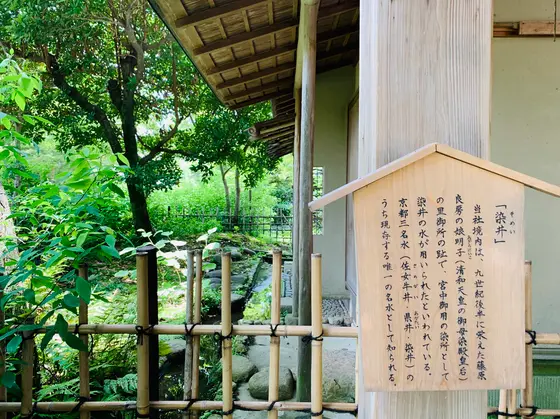 「染井」
当社境内は、九世紀後半に栄えた藤原
良房の娘明子（清和天皇の御母染殿皇后）
の里御所の趾で、宮中御用の染所として
染井の水が用いられたといわれている。
京都三名水（佐女牛井・県井・染井）の
うち現存する唯一の名水として知られる。